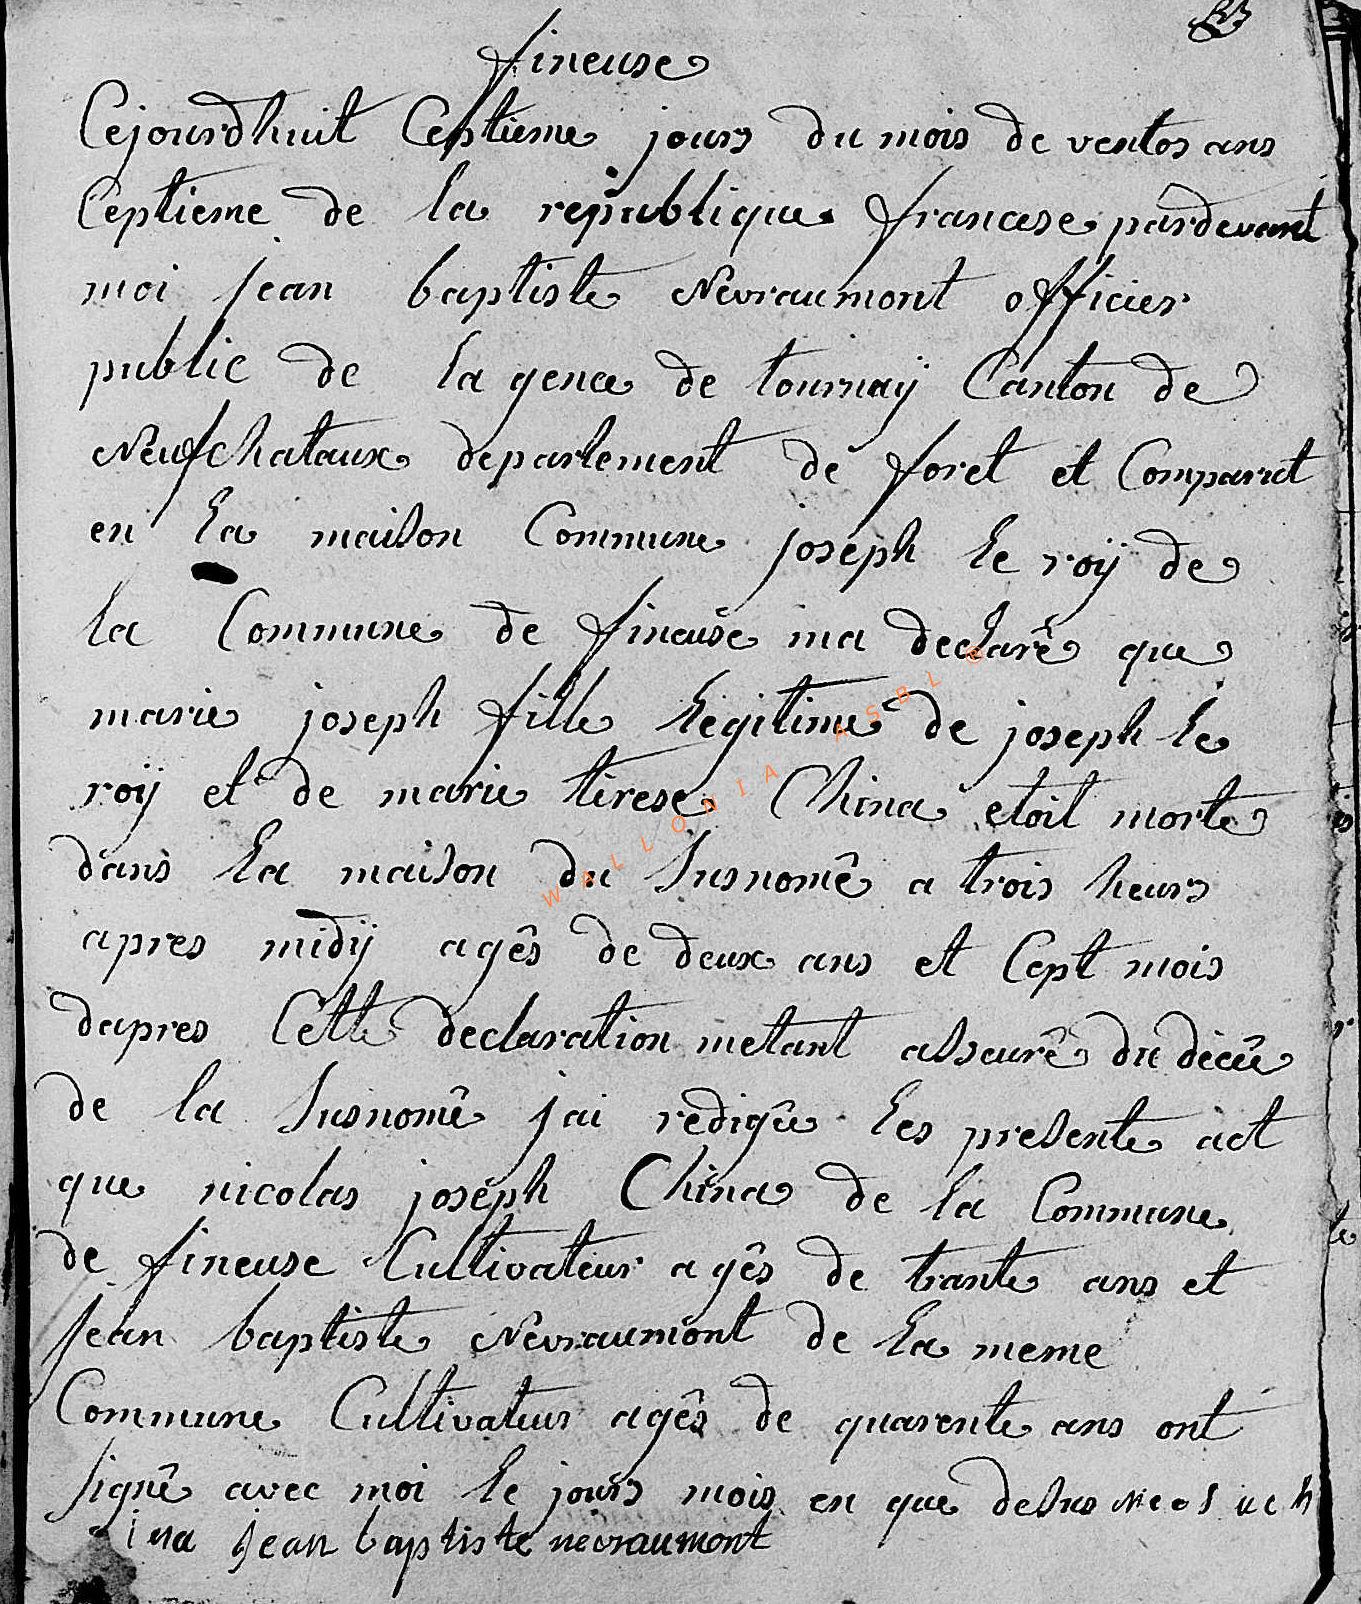 fineuse
Cejourdhuit Ceptieme jours du mois de ventos ans
Ceptieme de la republique francese pardevant
moi jean baptiste Nevraumont officier
public de la gence de tournaÿ Canton de
Neufchataux departement de foret et Comparut
en la maison Commune joseph le roÿ de
la Commune de fineuse ma declarê que
marie joseph fille legitime de joseph le
roÿ et de marie tirese China etoit morte
dans la maison du susnomê a trois heurs
apres midÿ agês de deux ans et Cept mois
dapres Cette declaration metant asseurê du dècêe
de la susnomê jai redigêe les presente act
que nicolas joseph China de la Commune
de fineuse Cultivateur agês de trante ans et
jean baptiste Nevraumont de la meme
Commune Cultivateur agês de quarente ans ont
signê avec moi le jours mois en que desus Nicols uch
ina jean baptiste nevraumont
WALLONIA ASBL ©